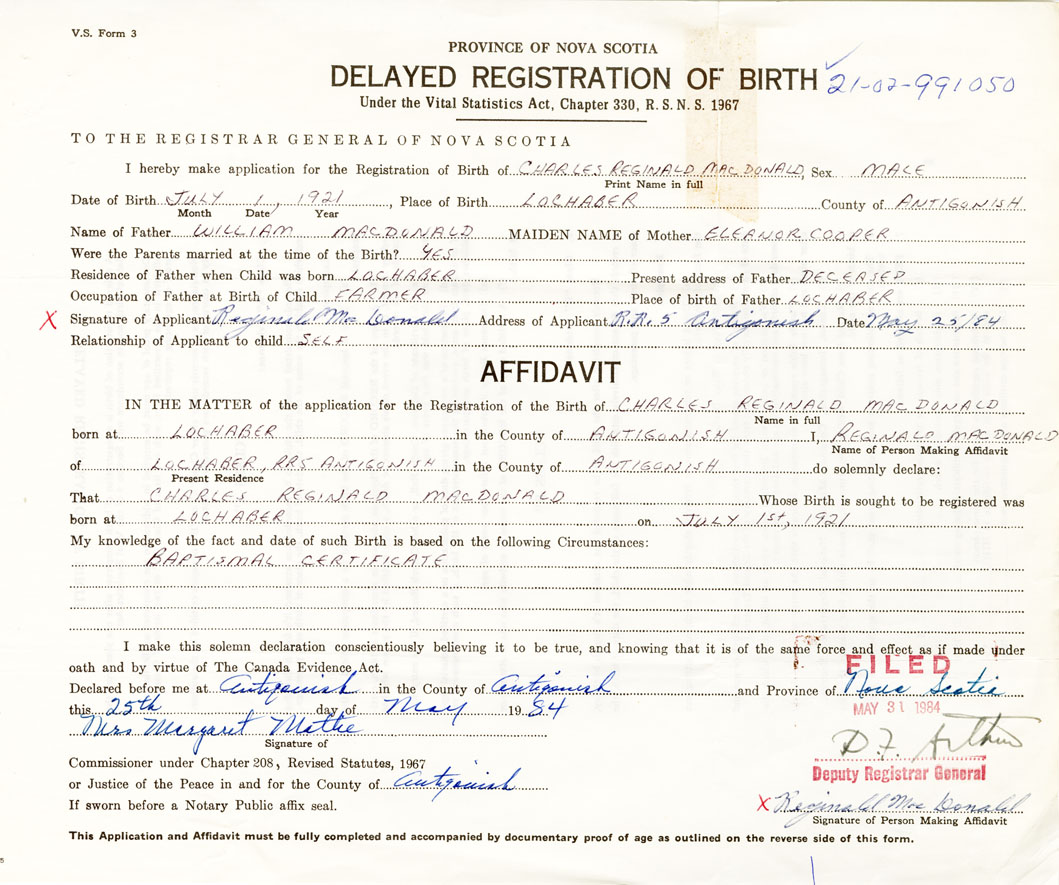 V.S. Form 3
PROVINCE OF NOVA SCOTIA
DELAYED REGISTRATION OF BIRTH 21-02-991050
Under the Vital Statistics Act, Chapter 330, R. S. N. S. 1967
TO THE REGISTRAR GENERAL OF NOVA SCOTIA
I hereby make application for the Registration of Birth of CHARLES REGINALD MACDONALD, Sex MALE
Print Name in full
Date of Birth JULY 1, 1921, Place of Birth LOCHABER County of ANTIGONISH
Month Date Year
Name of Father WILLIAM MACDONALD MAIDEN NAME of Mother ELEANOR COOPER
Were the Parents married at the time of the Birth? YES
Residence of Father when Child was born LOCHABER Present address of Father DECEASED
Occupation of Father at Birth of Child FARMER Place of birth of Father LOCHABER
X Signature of Applicant Reginald Mac Donald Address of Applicant R.R. 5 Antigonish Date May 25/84
Relationship of Applicant to child SELF
AFFIDAVIT
IN THE MATTER of the application for the Registration of the Birth of CHARLES REGINALD MACDONALD
Name in full
born at LOCHABER in the County of ANTIGONISH I, REGINALD MACDONALD
Name of Person Making Affidavit
of LOCHABER, RR5 ANTIGONISH in the County of ANTIGONISH do solemnly declare:
Present Residence
That CHARLES REGINALD MACDONALD Whose Birth is sought to be registered was
born at LOCHABER on JULY 1st, 1921
My knowledge of the fact and date of such Birth is based on the following Circumstances:
BAPTISMAL CERTIFICATE
I make this solemn declaration conscientiously believing it to be true, and knowing that it is of the same force and effect as if made under
oath and by virtue of The Canada Evidence Act.
FILED
Declared before me at Antigonish in the County of Antigonish and Province of Nova Scotia
this 25th day of May 19 84
MAY 31 1984
Mrs Margaret Mattie
Signature of
D.F. Arthur
Commissioner under Chapter 208, Revised Statutes, 1967
Deputy Registrar General
or Justice of the Peace in and for the County of Antigonish
If sworn before a Notary Public affix seal.
X Reginald Mac Donald
Signature of Person Making Affidavit
This Application and Affidavit must be fully completed and accompanied by documentary proof of age as outlined on the reverse side of this form.
5